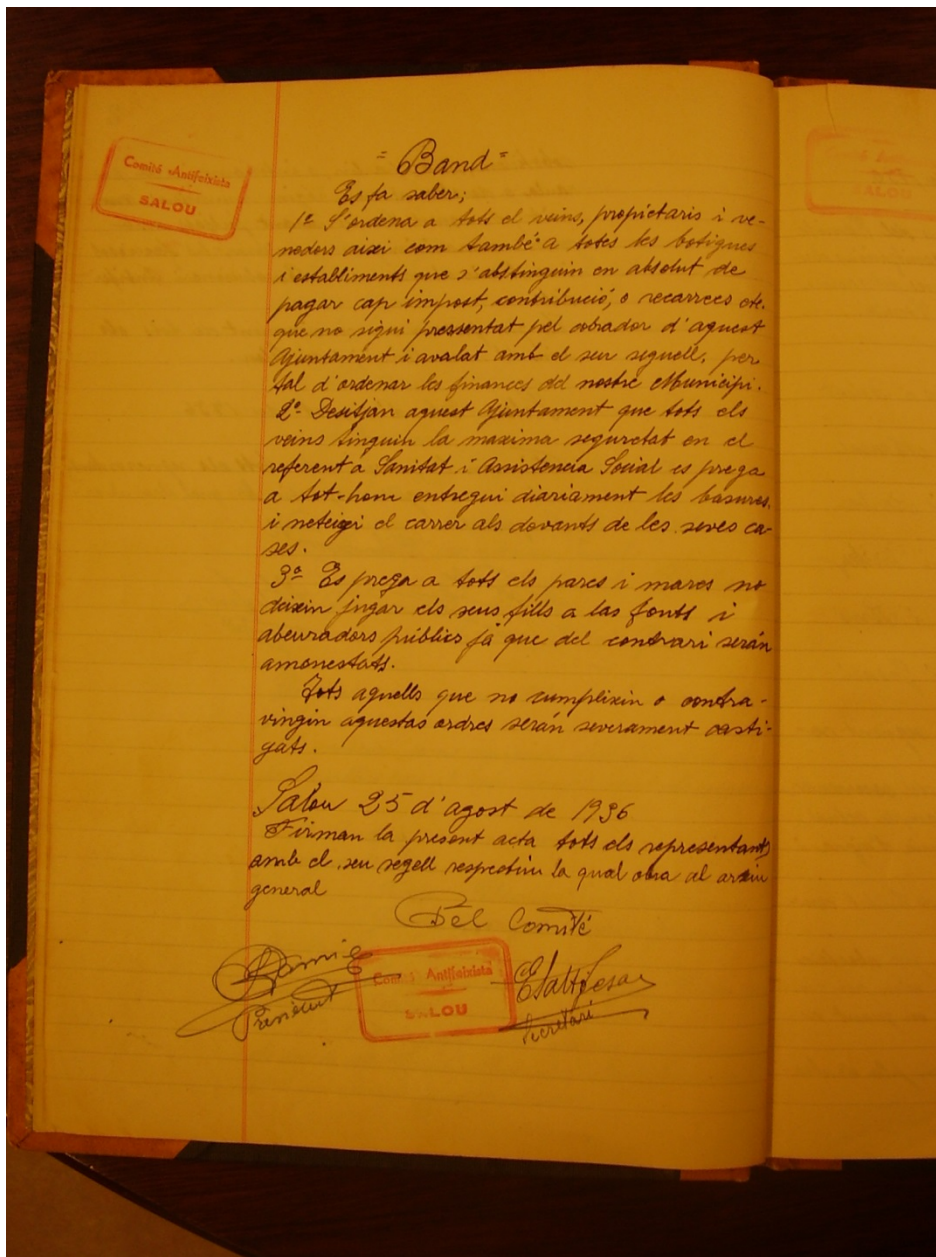 Comité Antifeixista
SALOU
= Band =
Es fa saber;
1º S'ordena a tots el veins, propietaris i ve-
nedors aixi com també a totes les botigues
i establiments que s'abstinguin en absolut de
pagar cap impost, contribució, o recarrecs etc.
que no sigui pressentat pel cobrador d'aquest
Ajuntament i avalat amb el seu seguell, per
tal d'ordenar les finances del nostre Municipi.
2º- Desitjan aquest Ajuntament que tots els
veins tinguin la maxima seguretat en el
referent a Sanitat i Assistencia Social es prega
a tot-hom entregui diariament les basures,
i neteigi el carrer als devants de les seves ca-
ses.
3º Es prega a tots els pares i mares no
deixin jugar els seus fills a las fonts i
abeuradors públics ja que del contrari serán
amonestats.
Tots aquells que no cumplixin o contra-
vingin aquestas ordres serán severament casti-
gats.
Salou 25 d'agost de 1936
Firman la present acta tots els representants
amb el seu segell respectiu la qual obra al arxiu
general
Pel Comité
President
Comité Antifeixista
SALOU
Secretari
ALOU